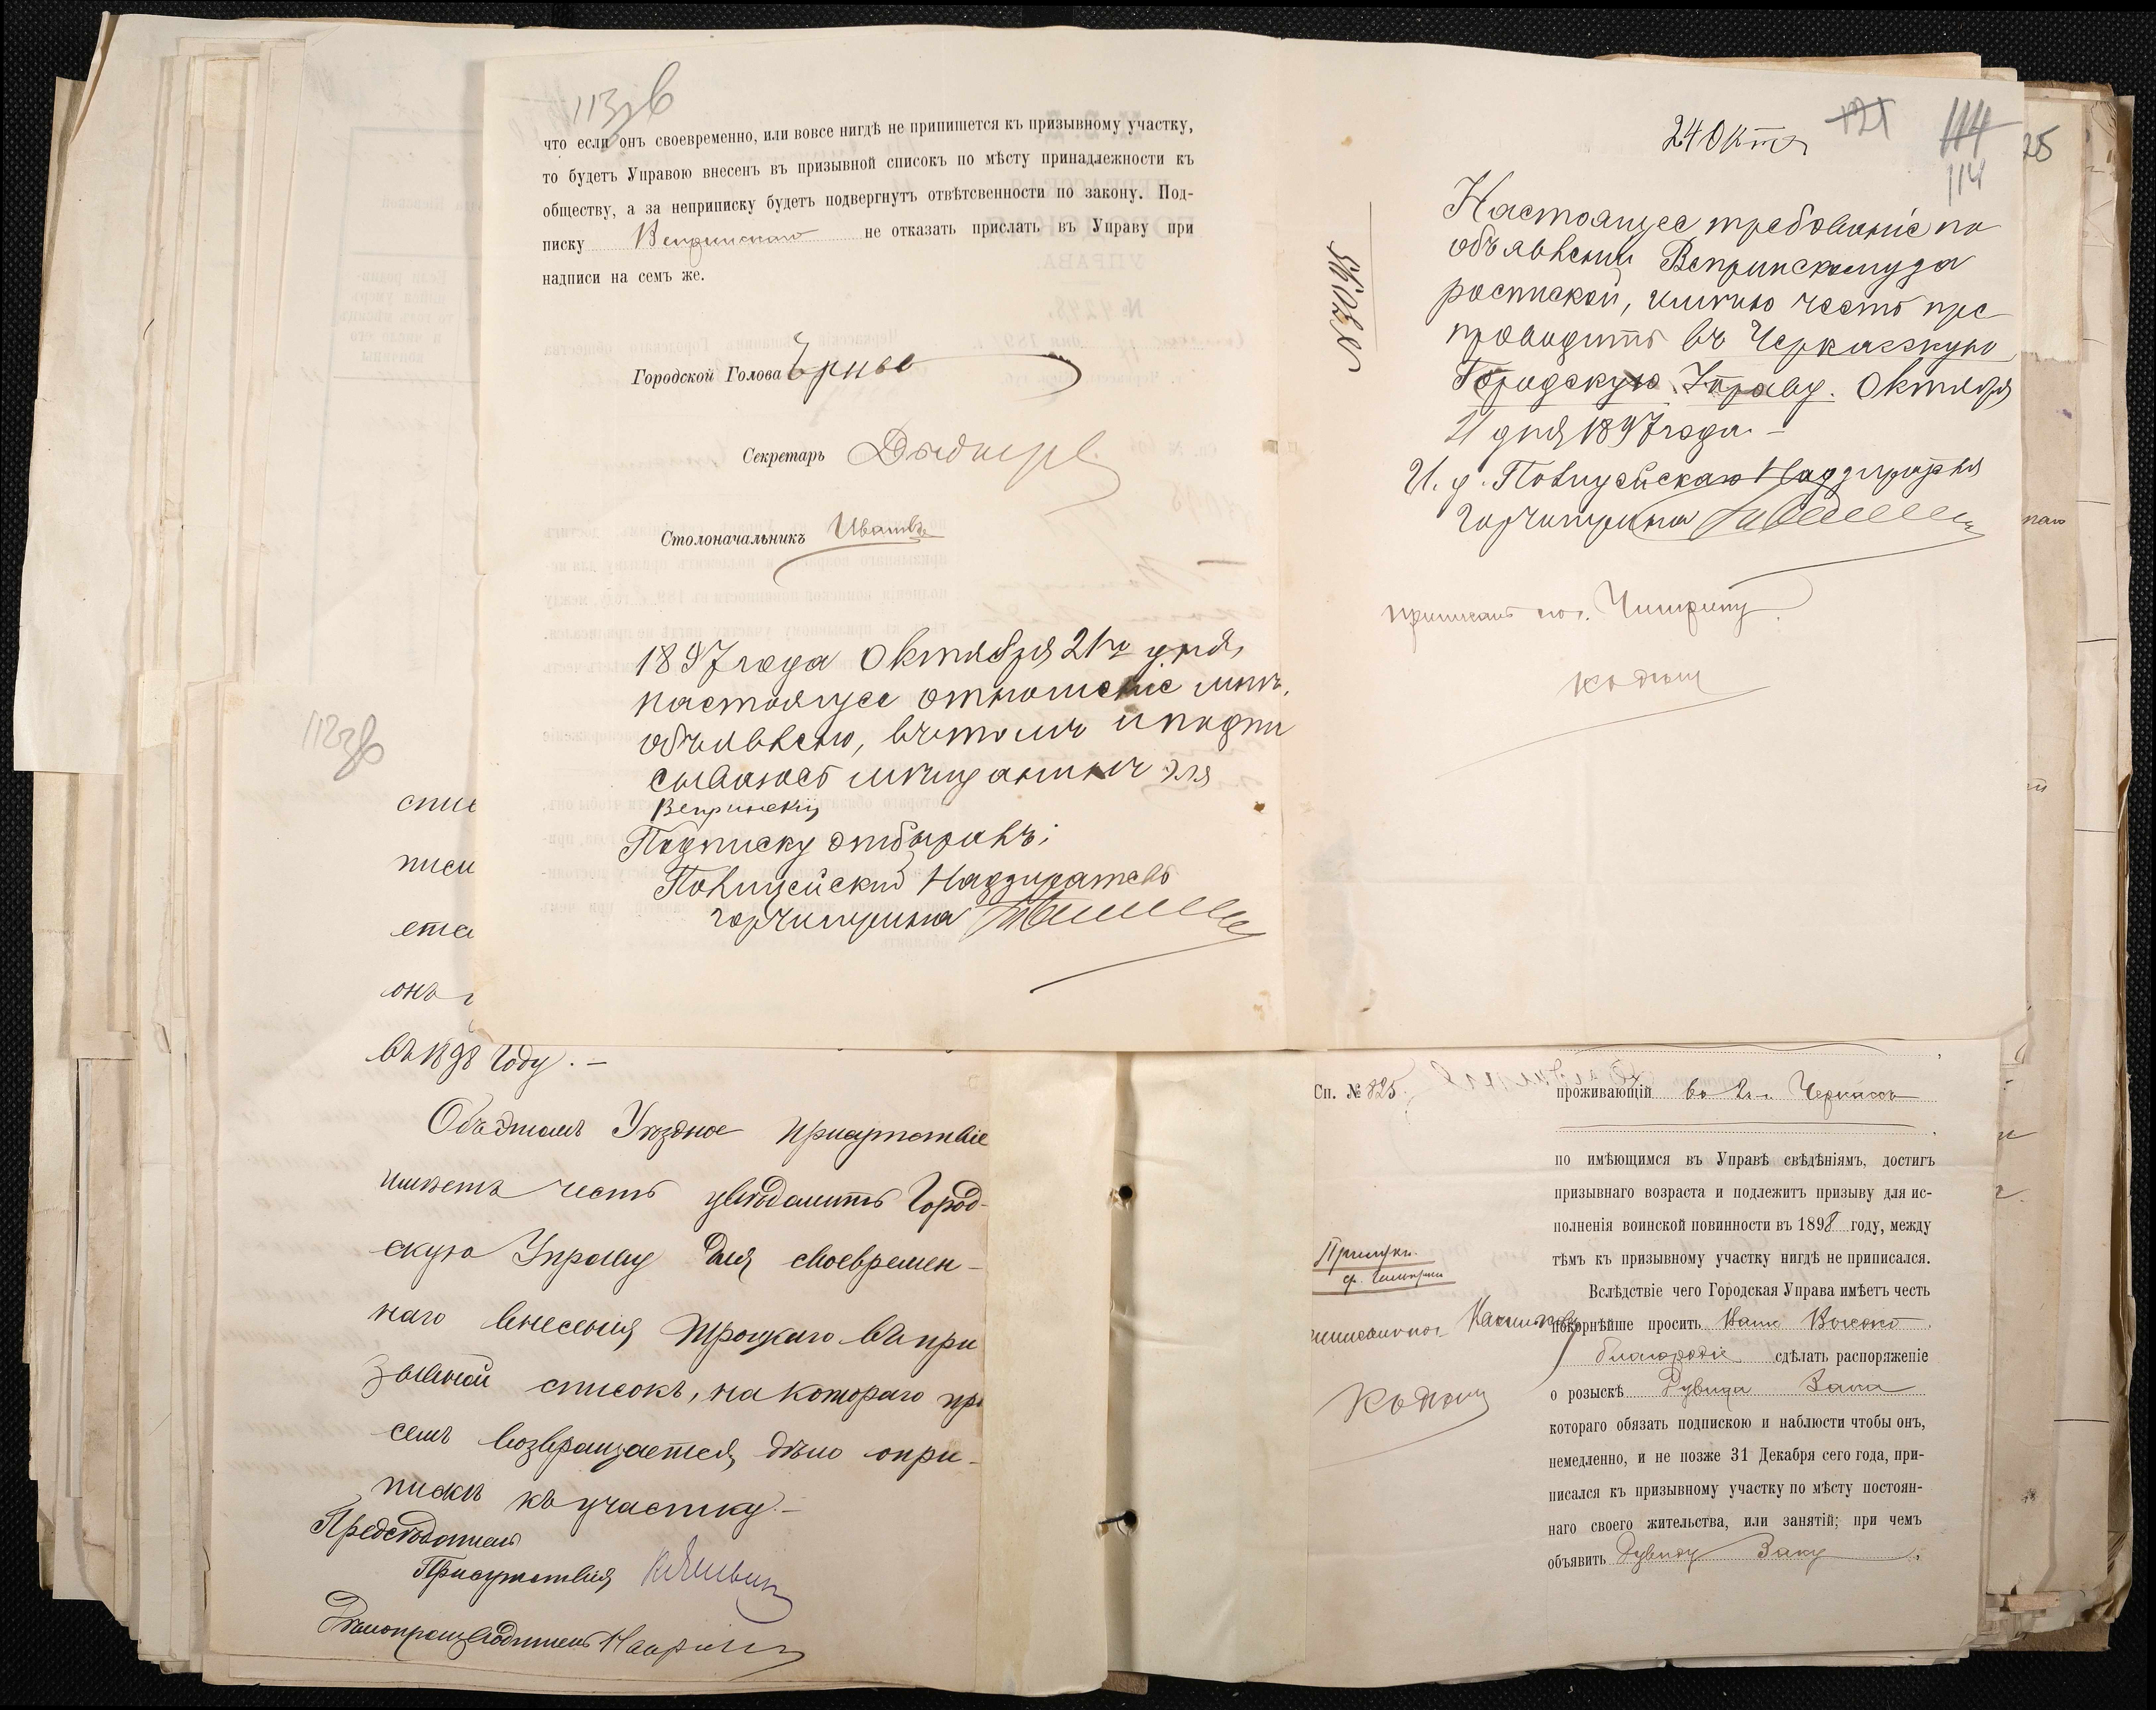 113 зв
что если онъ своевременно, или вовсе нигдѣ не припишется къ призывному участку,
то будетъ Управою внесенъ въ призывной списокъ по мѣсту принадлежности къ
обществу, а за неприписку будетъ подвергнутъ отвѣтсвенности по закону. Под-
писку Вепринскаго не отказать прислать въ Управу при
надписи на семъ же.
Городской Голова
Секретарь
Столоначальникъ
1897 года Октября 21го дня,
настоящее отношеніе мнѣ
объявлено, въ томъ и подпи
сываюсь мѣщанинъ Эля
Вепринскій
Подписку отбиралъ:
Полицейский Надзиратель
гор Чигирина
24 Окт
121
114
114
25
Настоящее требованіе по
объявленіи Вепринскому за
роспиской, имѣю честь пре-
проводить въ Черкасскую
Городскую Управу. Октября
21 дня 1897 года -
И. д. Полицейскаго Надзирателя
гор Чигирина
приписанъ по г. Чигирину
112 зв
спис
писи
ета
онъ
въ 1898 Году. -
Объ этомъ Уѣздное Присутствіе
имѣетъ честь увѣдомить Город-
скую Управу для своевремен-
наго внесенія Троцкаго въ при
зывной списокъ, на котораго при
семъ возвращается дѣло о при-
пискѣ къ участку. -
Предсѣдатель
Присутствія
Дѣлопроизводитель
Сп. № 825.
проживающій въ г. Черкассъ
по имѣющимся въ Управѣ свѣдѣніямъ, достигъ
призывнаго возраста и подлежитъ призыву для ис-
полненія воинской повинности въ 1898 году, между
тѣмъ къ призывному участку нигдѣ не приписался.
Вслѣдствіе чего Городская Управа имѣетъ честь
покорнѣйше просить Ваше Высоко
благородіе сдѣлать распоряженіе
о розыскѣ Дувида Зака
котораго обязать подпискою и наблюсти чтобы онъ,
немедленно, и не позже 31 Декабря сего года, при-
писался къ призывному участку по мѣсту постоян-
наго своего жительства, или занятій; при чемъ
объявить Дувиду Заку